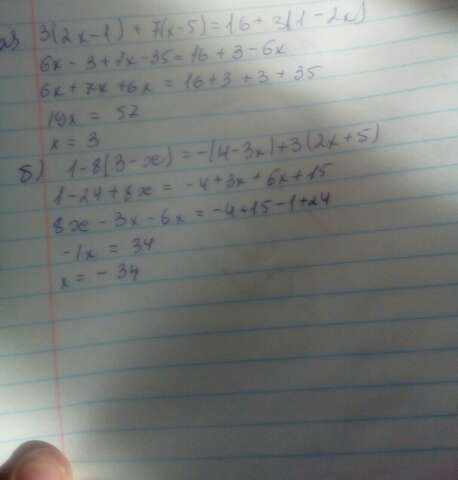 а) 3(2x-1) + 7(x-5) = 16 + 3(1-2x)
6x - 3 + 7x - 35 = 16 + 3 - 6x
6x + 7x + 6x = 16 + 3 + 3 + 35
19x = 57
x = 3
б) 1 - 8(3-x) = -(4-3x) + 3(2x+5)
1 - 24 + 8x = -4 + 3x + 6x + 15
8x - 3x - 6x = -4 + 15 - 1 + 24
-1x = 34
x = - 34